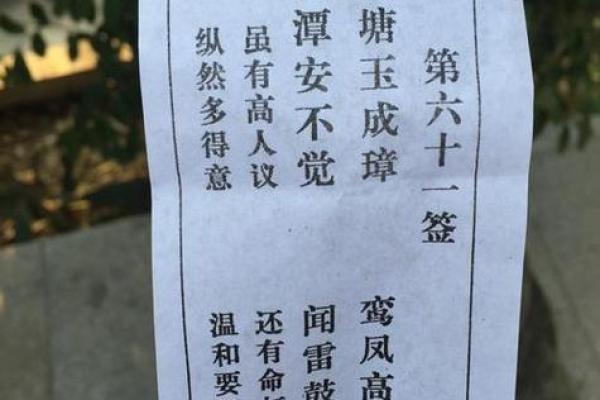 第六十一签
塘玉成璋 鸾凤高
潭安不觉 闻雷鼓
虽有高人议 还有命
纵然多得意 温和要